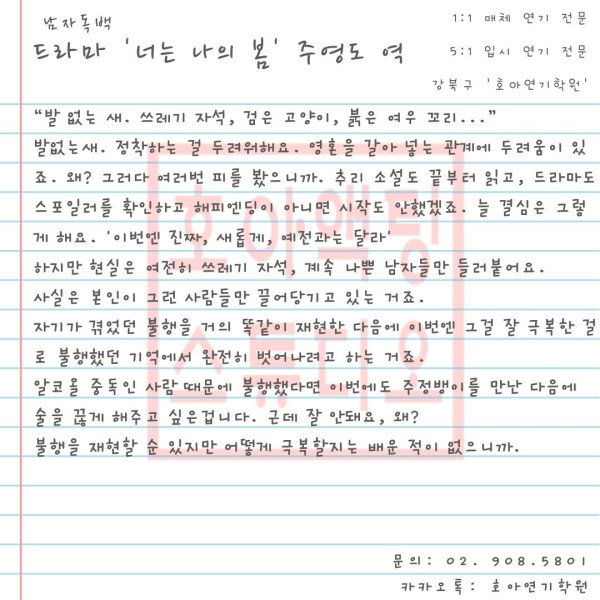 남자독백
1:1 매체 연기 전문
드라마 '너는 나의 봄' 주영도 역
5:1 입시 연기 전문
강북구 '호아연기학원'
“발 없는 새. 쓰레기 자석, 검은 고양이, 붉은 여우 꼬리...”
발없는새. 정착하는 걸 두려워해요. 영혼을 갈아 넣는 관계에 두려움이 있
죠. 왜? 그러다 여러번 피를 봤으니까. 추리 소설도 끝부터 읽고, 드라마도
스포일러를 확인하고 해피엔딩이 아니면 시작도 안했겠죠. 늘 결심은 그렇
게 해요. '이번엔 진짜, 새롭게, 예전과는 달라'
하지만 현실은 여전히 쓰레기 자석, 계속 나쁜 남자들만 들러붙어요.
사실은 본인이 그런 사람들만 끌어당기고 있는 거죠.
자기가 겪었던 불행을 거의 똑같이 재현한 다음에 이번엔 그걸 잘 극복한 걸
로 불행했던 기억에서 완전히 벗어나려고 하는 거죠.
알코올 중독인 사람 때문에 불행했다면 이번에도 주정뱅이를 만난 다음에
술을 끊게 해주고 싶은겁니다. 근데 잘 안돼요, 왜?
불행을 재현할 순 있지만 어떻게 극복할지는 배운 적이 없으니까.
호아액팅
스튜디오
문의: 02. 908.5801
카카오톡: 호아연기학원